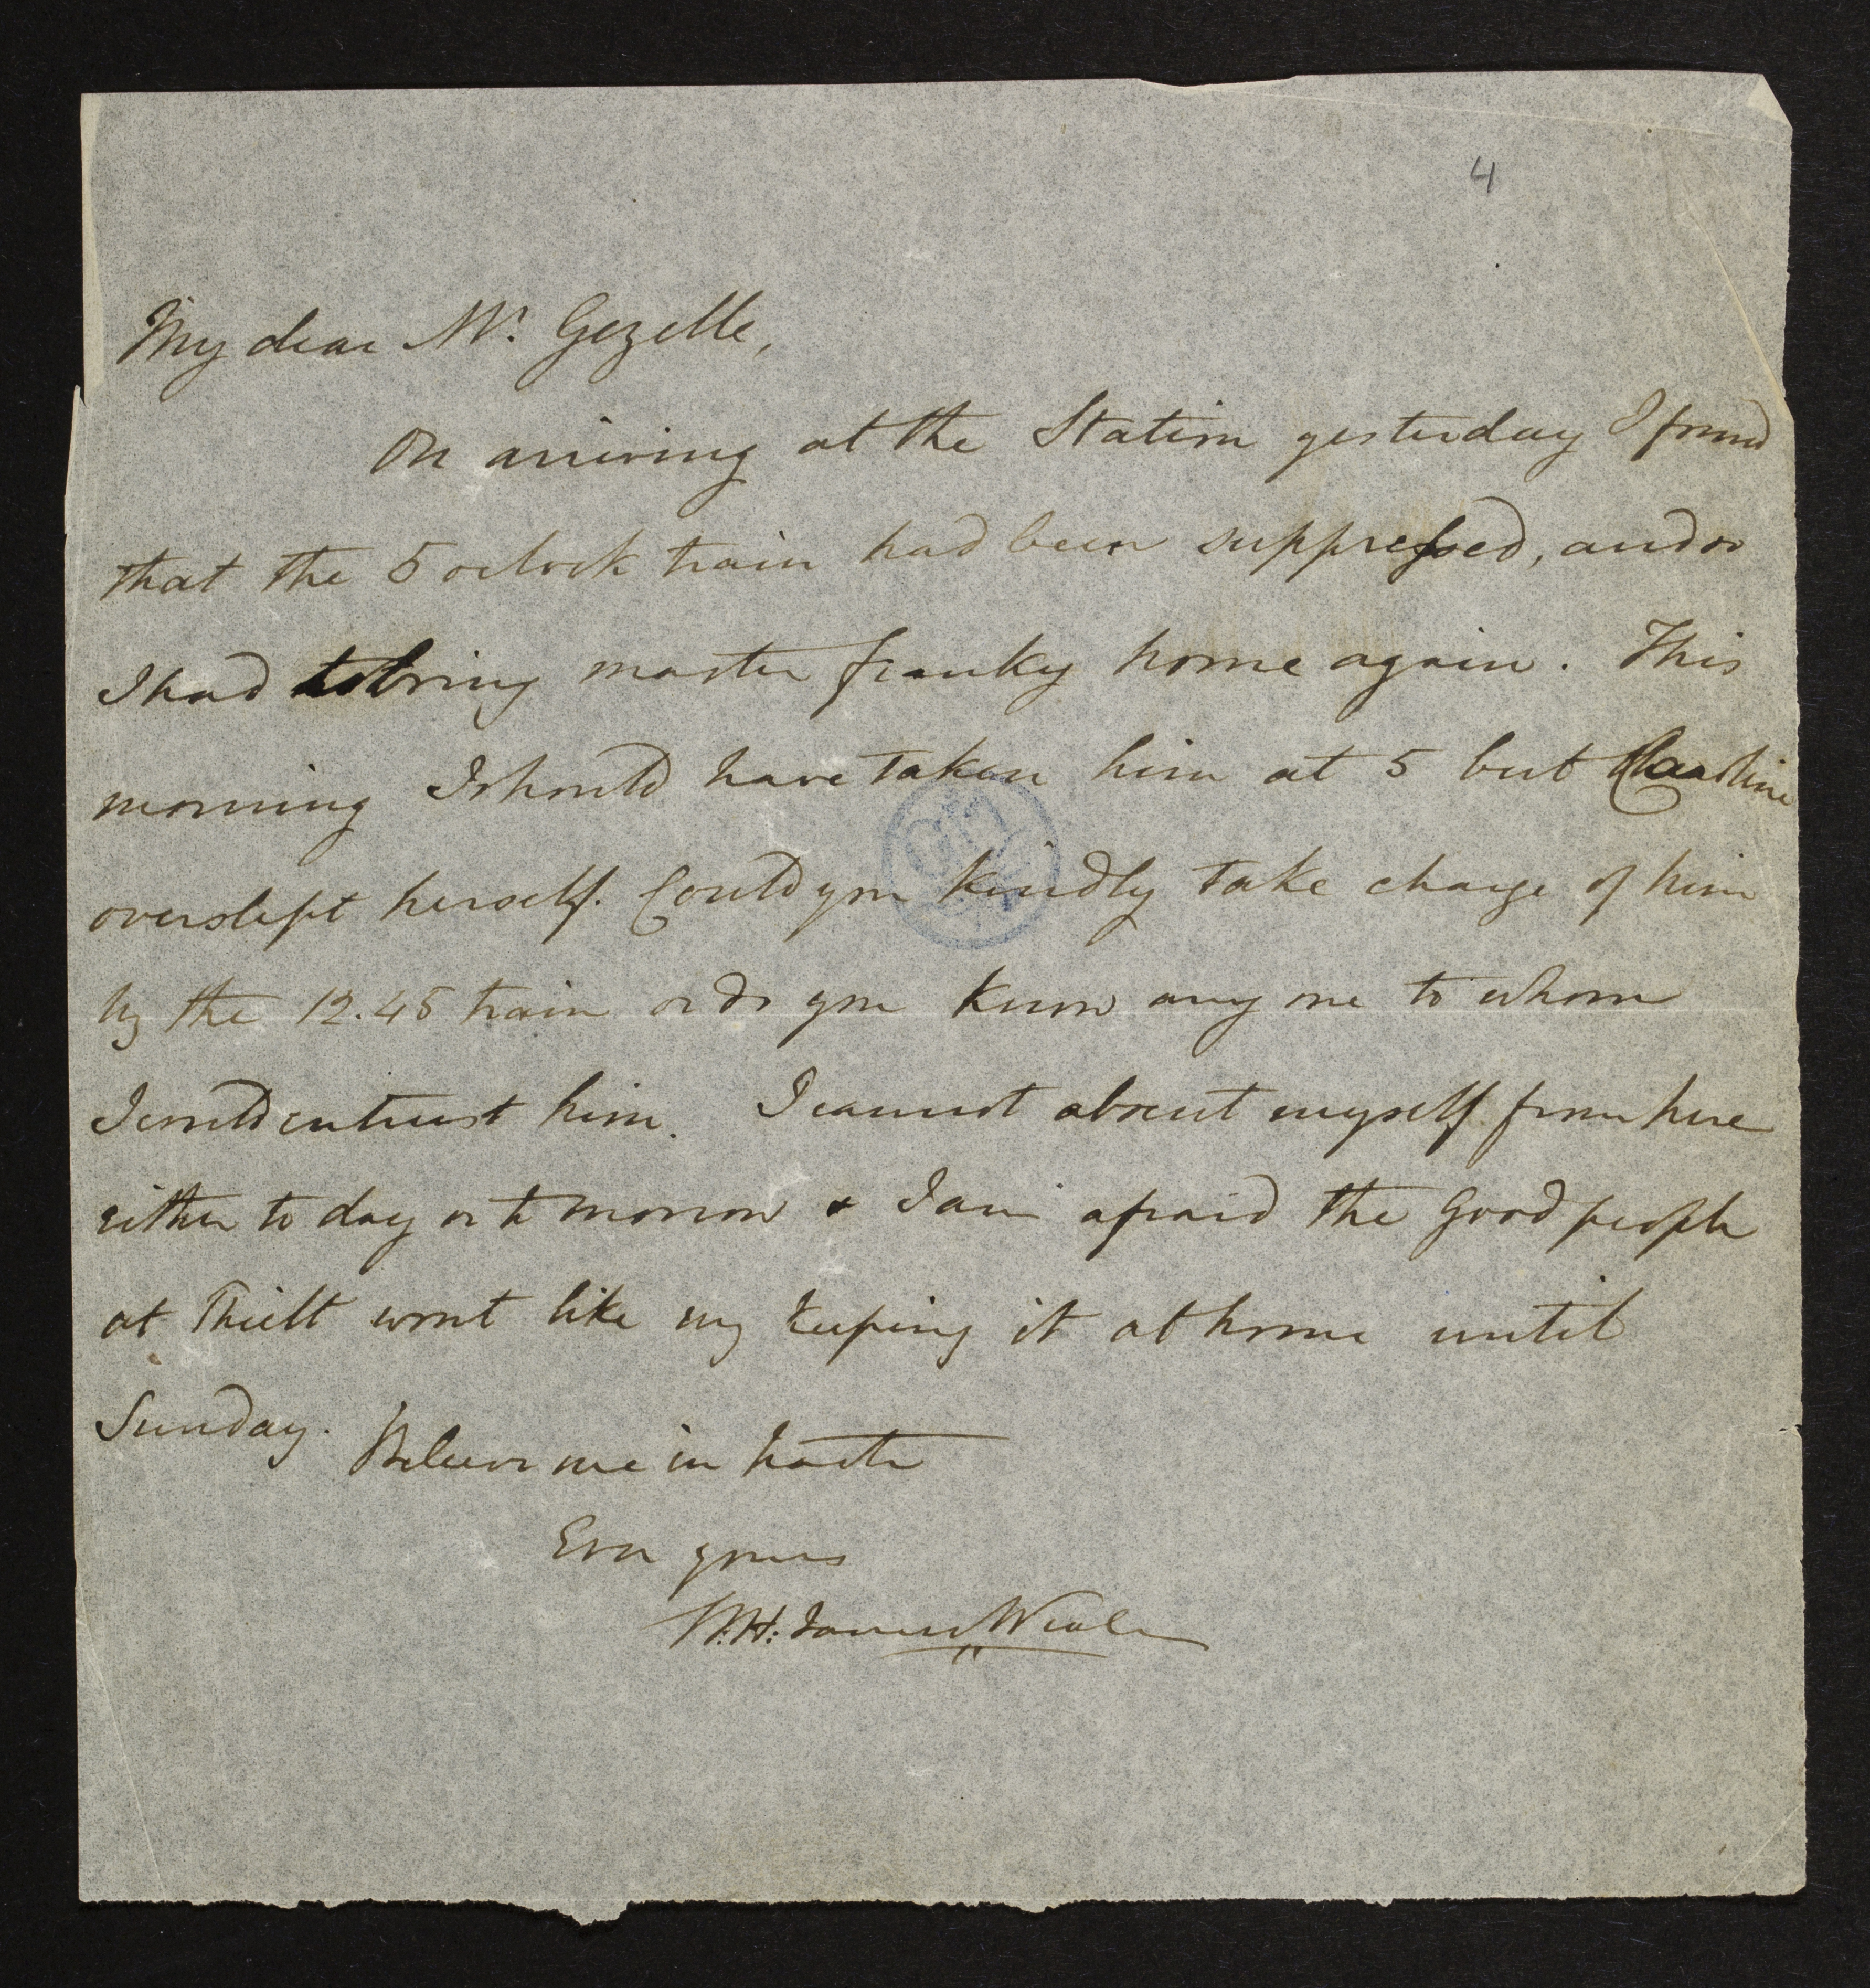 4
My dear Mr. Gezelle,
On arriving at the Station yesterday I found
that the 5 oclock train had been suppressed, and so
I had to bring master franky home again. This
morning I should have taken him at 5 but Caroline
overslept herself. Could you kindly take charge of him
by the 12.45 train or do you know any one to whom
I could entrust him. I cannot absent myself from here
either to day or to morrow & I am afraid the good people
at Thielt wont like my keeping it at home until
Sunday. Believe me in haste
Ever yours
W.H. James Weale